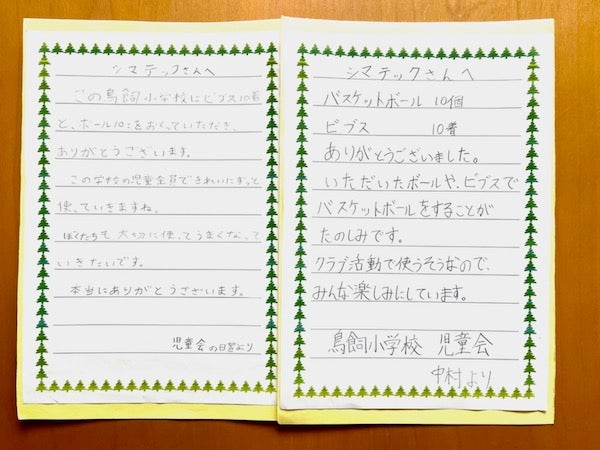 シマテックさんへ
この鳥飼小学校にビブス10着
と、ボール10こをおくっていただき、
ありがとうございます。
この学校の児童全員できれいにずっと
使っていきますね。
ぼくたちも大切に使ってうまくなって
いきたいです。
本当にありがとうございます。
児童会の日宮より
シマテックさんへ
バスケットボール 10個
ビブス 10着
ありがとうございました。
いただいたボールや、ビブスで
バスケットボールをすることが
たのしみです。
クラブ活動で使うそうなので、
みんな楽しみにしています。
鳥飼小学校 児童会
中村より